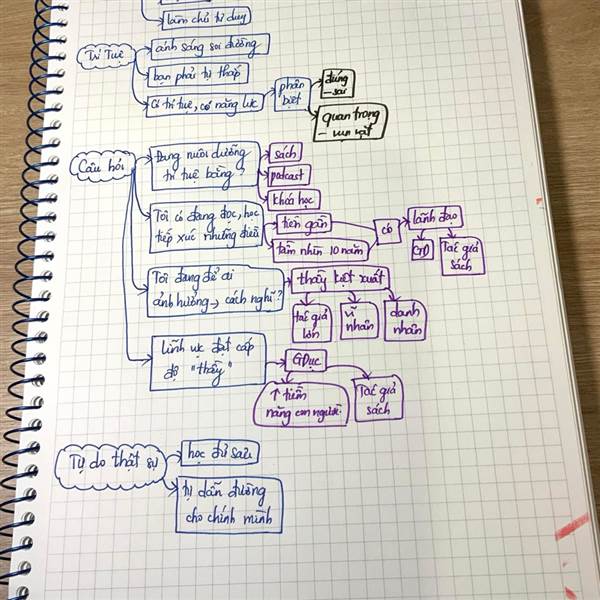 làm chủ tư duy
Trí Tuệ
ánh sáng soi đường
bạn phải tự thắp
Có trí tuệ, có năng lực
phân
biệt
đúng
- sai
quan trọng
- vụn vặt
Câu hỏi
Đang nuôi dưỡng
trí tuệ bằng ?
sách
podcast
khoá học
Tôi có đang đọc, học
tiếp xúc những điều
tiến gần
tầm nhìn 10 năm
có
lãnh đạo
CTD
Tác giả
sách
Tôi đang để ai
ảnh hưởng → cách nghĩ ?
thầy kiệt xuất
tác giả
lớn
vĩ
nhân
danh
nhân
Lĩnh vực đạt cấp
độ "thầy"
GDục
↑ tiềm
năng con người
Tác giả
sách
Tự do thật sự
học đủ sâu
tự dẫn đường
cho chính mình